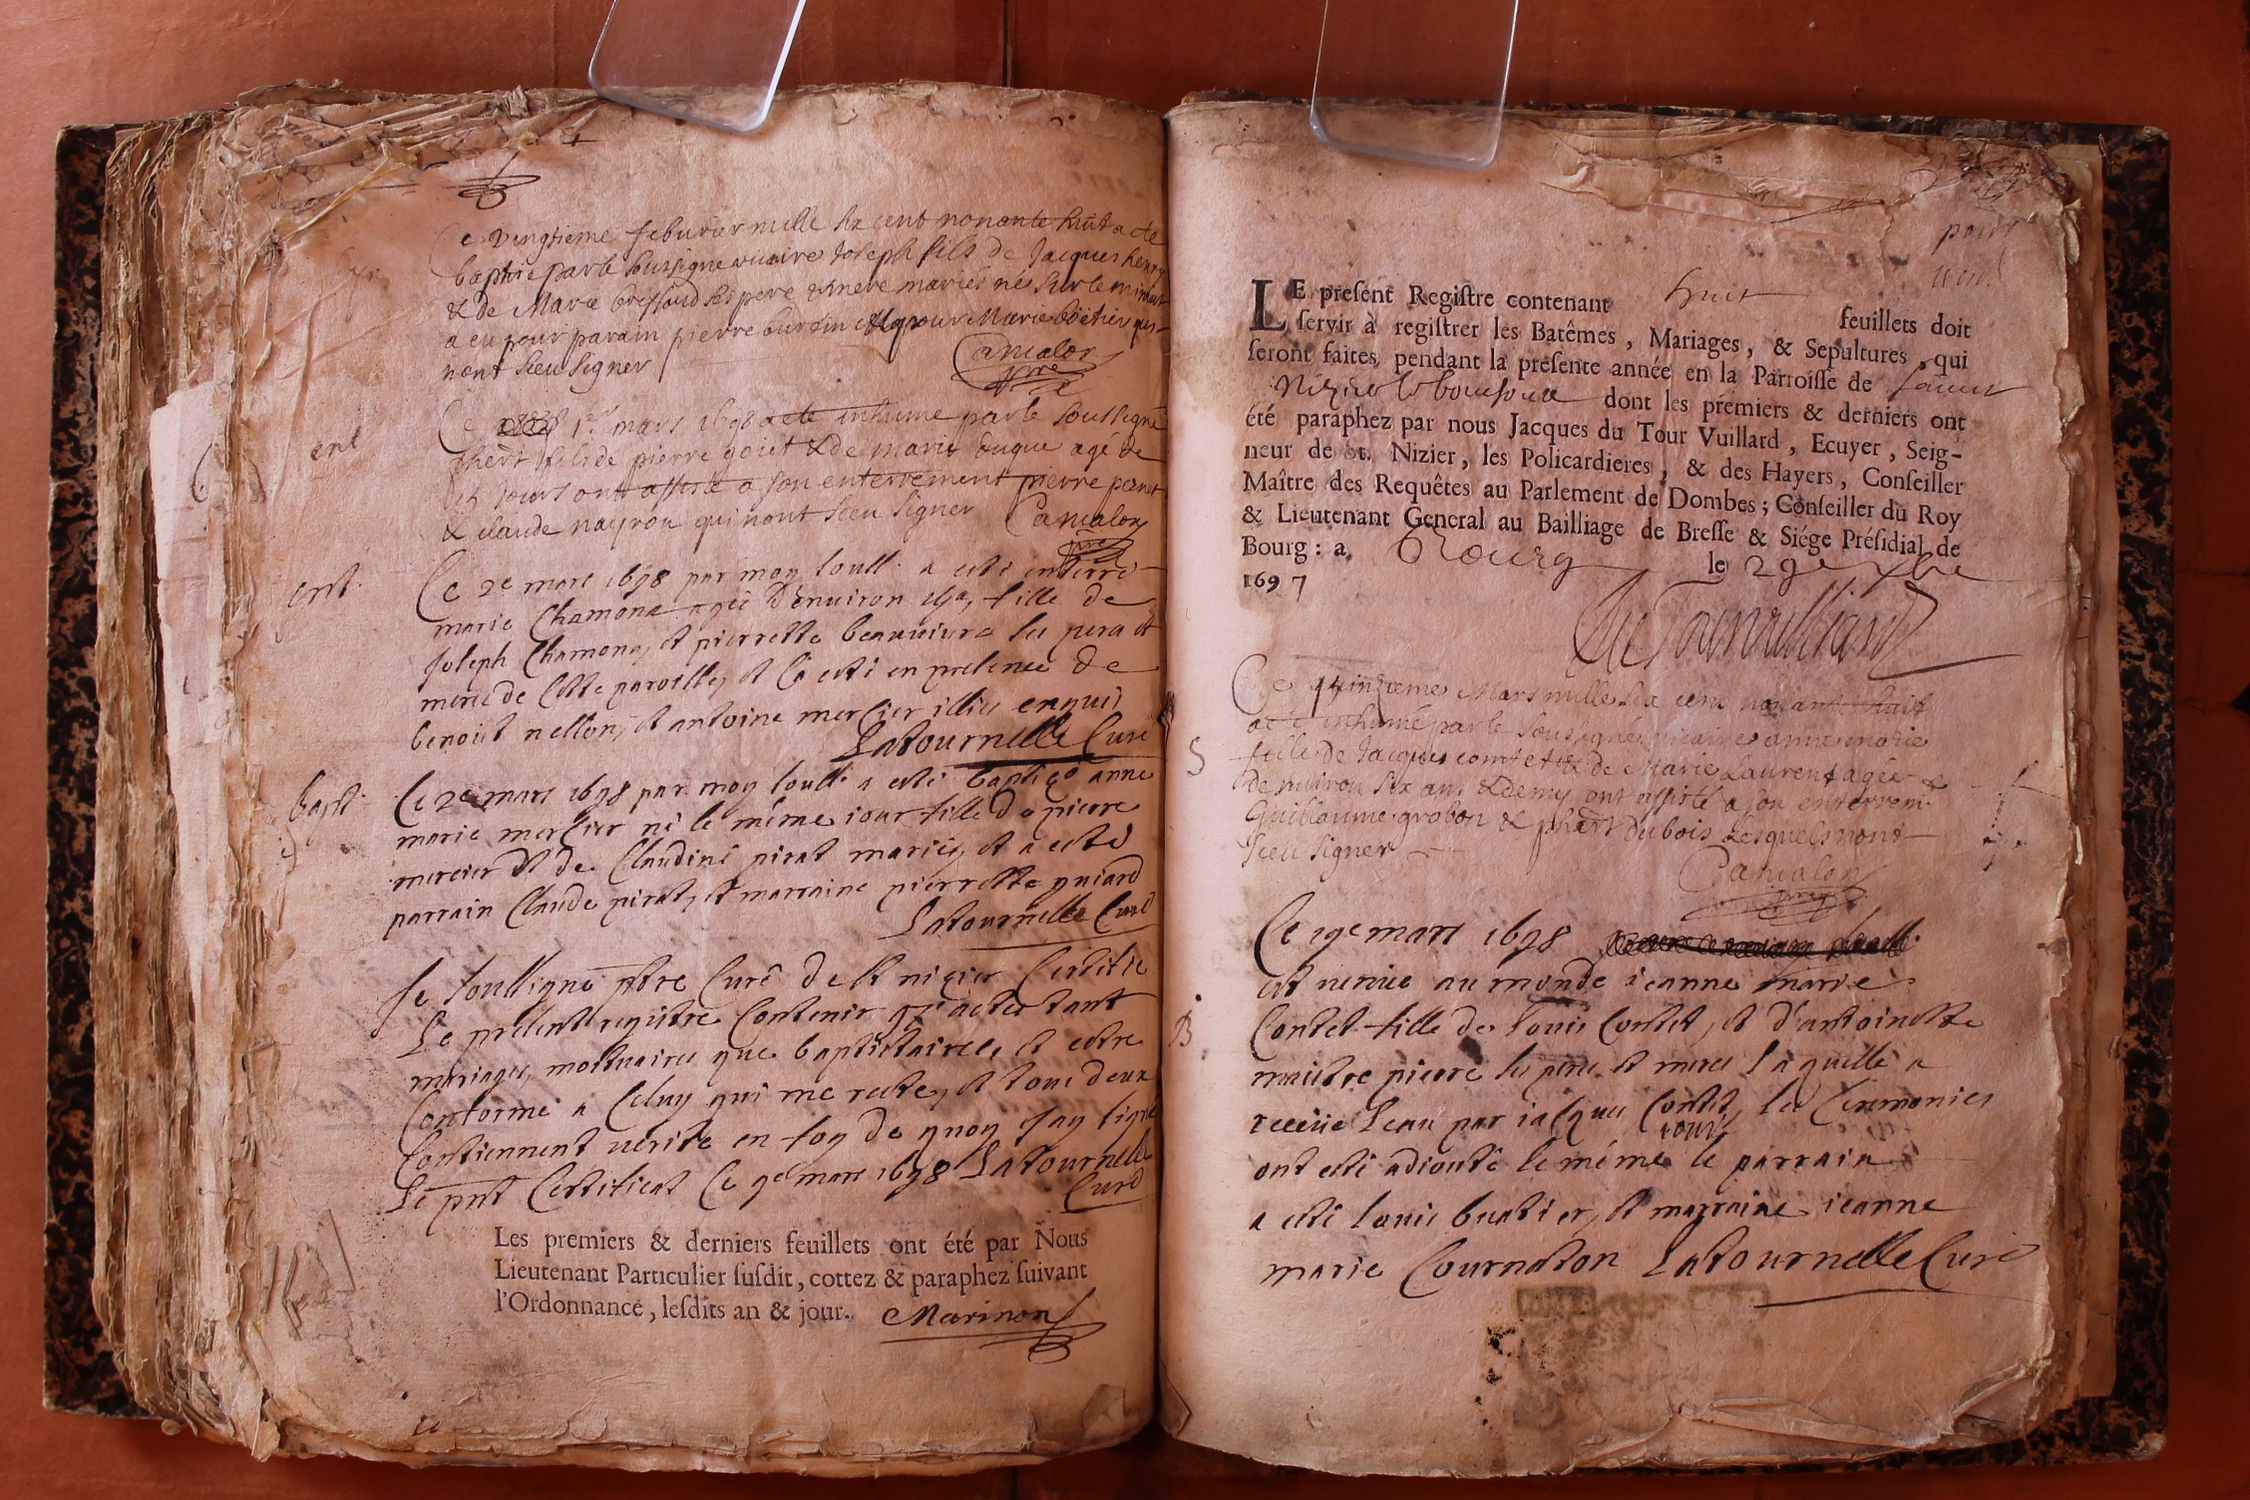 Ce vingtieme feburier mille six cent nonante huit a ete
baptise par le soussigne vicaire Joseph fils de Jacques henry
& de Marie brissaud ses pere & mere mariés né sur le minuit
a eu pour parain pierre burdin & pour Marie boëtier qui
nont sceu signer Camalon
ptre
ent
Ce 1er mars 1698 a ete inhume par le soussigné
phert fils de pierre goiet & de marie duque agé de
15 jours ont assisté a son enterrement pierre pernet
& claude nayron qui nont sceu signer Camalon
ptre
ent.
Ce 2e mars 1698 par moy soussi. a esté enterré
marie Chamona agée d'enuiron fille de
Joseph Chamona, et pierrette beauuiura ses pere et
mere de cette paroisse, et ce a esté en presence de
benoist nellon, et antoine mercier illi. enquis
Latournelle Curé
bapt.
Ce 2e mars 1698 par moy soussi. a esté baptisé anne
marie mercier né le méme iour fille de pierre
mercier et de Claudine pirat mariés, et a esté
parrain Claude pirat, et marraine pierrette guiard
Latournelle Curé
Je soussigné ptre Curé de St nizier Certifie
Le présent registre Contenir actes tant
mariages, mortuaires que baptistaires, et estre
Conforme a Celuy qui me reste, et tous deux
Contiennent uerité en foy de quoy j'ay signé
Le pnt Certificat Ce 9e mars 1698 Latournelle
Curé
Les premiers & derniers feuillets ont été par Nous
Lieutenant Particulier susdit, cottez & paraphez suivant
l'Ordonnance, lesdits an & jour. Marinon
LE present Registre contenant huit feuillets doit
servir à registrer les Batêmes, Mariages, & Sepultures, qui
seront faites pendant la presente année en la Parroisse de sainct
Nizier le bouchoux dont les premiers & derniers ont
été paraphez par nous Jacques du Tour Vuillard, Ecuyer, Seig-
neur de St. Nizier, les Policardieres, & des Hayers, Conseiller
Maître des Requêtes au Parlement de Dombes; Conseiller du Roy
& Lieutenant General au Bailliage de Bresse & Siége Présidial de
Bourg: a Bourg le 29e xbre
1697
Du Tourvuilliard
S
Ce quinzieme Mars mille six cens nonante huit
a ete inhumé par le soussigné vicaire anne marie
fille de Jacques comtet & de Marie Laurent agée
de nuiron six ans & demy ont assisté a son enterrem.
Guillaume grobon & phert Dubois Lesquels n'ont
sceu signer
Camalon
ptre
B
Ce 19e mars 1698
est venue au monde ieanne marie
Contet fille de Louis Contet, et d'antoinette
maistre pierre ses pere et mere laquelle a
receüe l'eau par iacques Contet, les Ceremonies
ont esté adiouté le méme iour le parrain
a esté louis buatier, et marraine ieanne
marie Cournaton Latournelle Curé